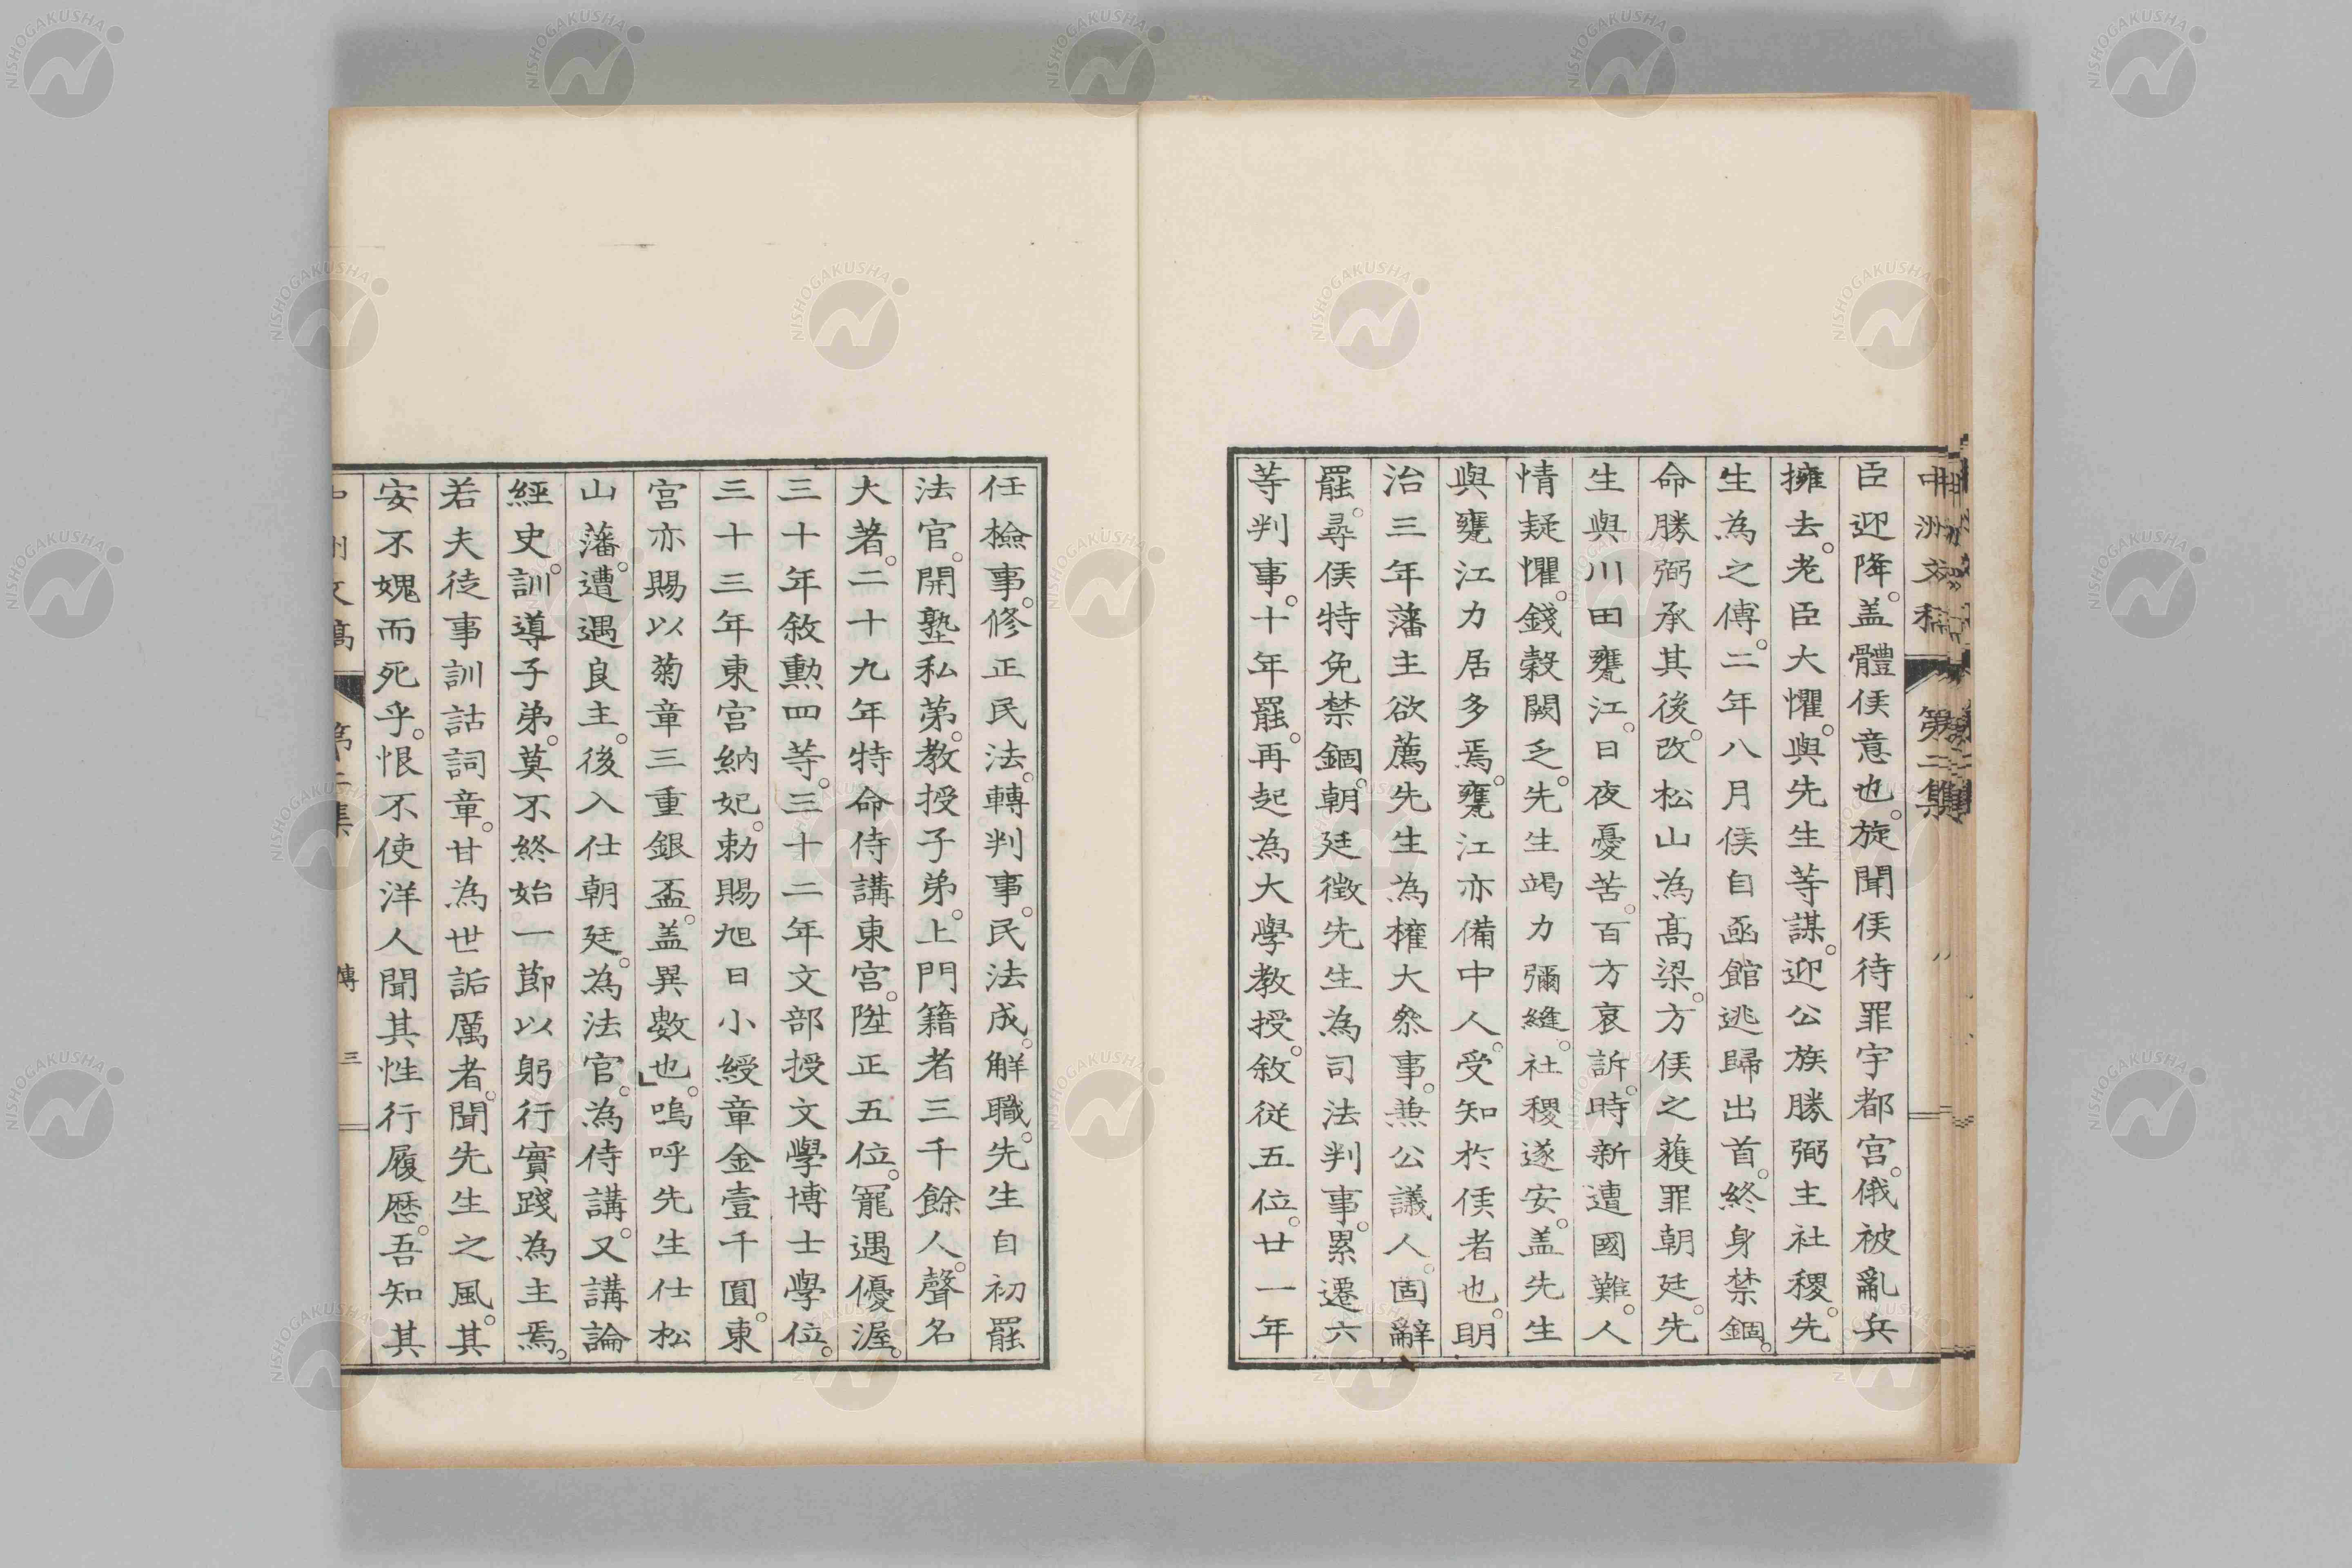 中洲文稿 第二集
臣迎降。盖體侯意也。旋聞侯待罪宇都宮。俄被亂兵
擁去。老臣大懼。與先生等謀。迎公族勝弼主社稷。先
生為之傅。二年八月侯自凾館逃歸出首。終身禁錮。
命勝弼承其後。改松山為高梁。方侯之獲罪朝廷。先
生與川田甕江。日夜憂苦。百方哀訴。時新遭國難。人
情疑懼。錢穀闕乏。先生竭力彌縫。社稷遂安。盖先生
與甕江力居多焉。甕江亦備中人。受知於侯者也。明
治三年藩主欲薦先生為權大叅事。兼公議人。固辭
罷。尋侯特免禁錮。朝廷徴先生為司法判事。累遷六
等判事。十年罷。再起為大學教授。敘從五位。廿一年
任檢事。修正民法。轉判事。民法成。解職。先生自初罷
法官。開塾私第。教授子弟。上門籍者三千餘人。聲名
大著。二十九年特命侍講東宮。陞正五位。寵遇優渥。
三十年敘勲四等。三十二年文部授文學博士學位。
三十三年東宮納妃。勅賜旭日小綬章金壹千圓。東
宮亦賜以菊章三重銀盃。盖異數也。」嗚呼先生仕松
山藩。遭遇良主。後入仕朝廷。為法官。為侍講。又講論
經史。訓導子弟。莫不終始一節以躬行實踐為主焉。
若夫徒事訓詁詞章。甘為世詬厲者。聞先生之風。其
安不媿而死乎。恨不使洋人聞其性行履歷。吾知其
中洲文稿 第二集 傳 三